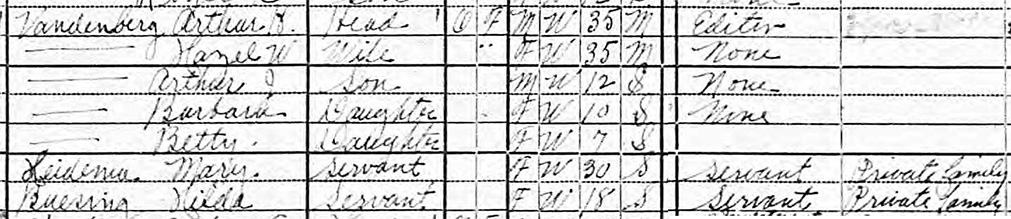 Vandenberg Arthur H. Head O F M W 35 M Editor
— Hazel W Wife " F W 35 M None
— Arthur J Son M W 12 S None
— Barbara Daughter F W 10 S None
— Betty. Daughter F W 7 S
Heidema Mary. Servant F W 30 S Servant Private family
Buesing Hilda Servant F W 18 S Servant Private family